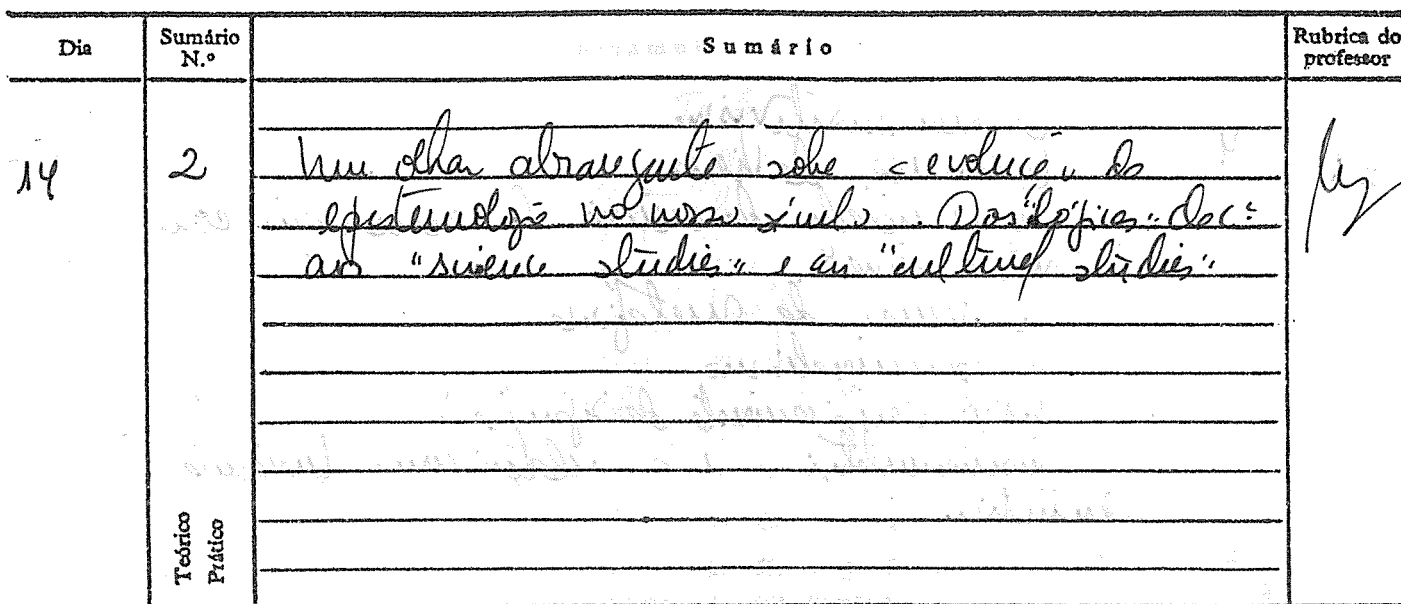 Dia
Sumário N.º
Sumário
Rubrica do professor
14
2
Um olhar abrangente sobre a "evolução" da
epistemologia no nosso século. Das "lógicas" da c.ª
aos "science studies" e aos "cultural studies".
Teórico
Prático